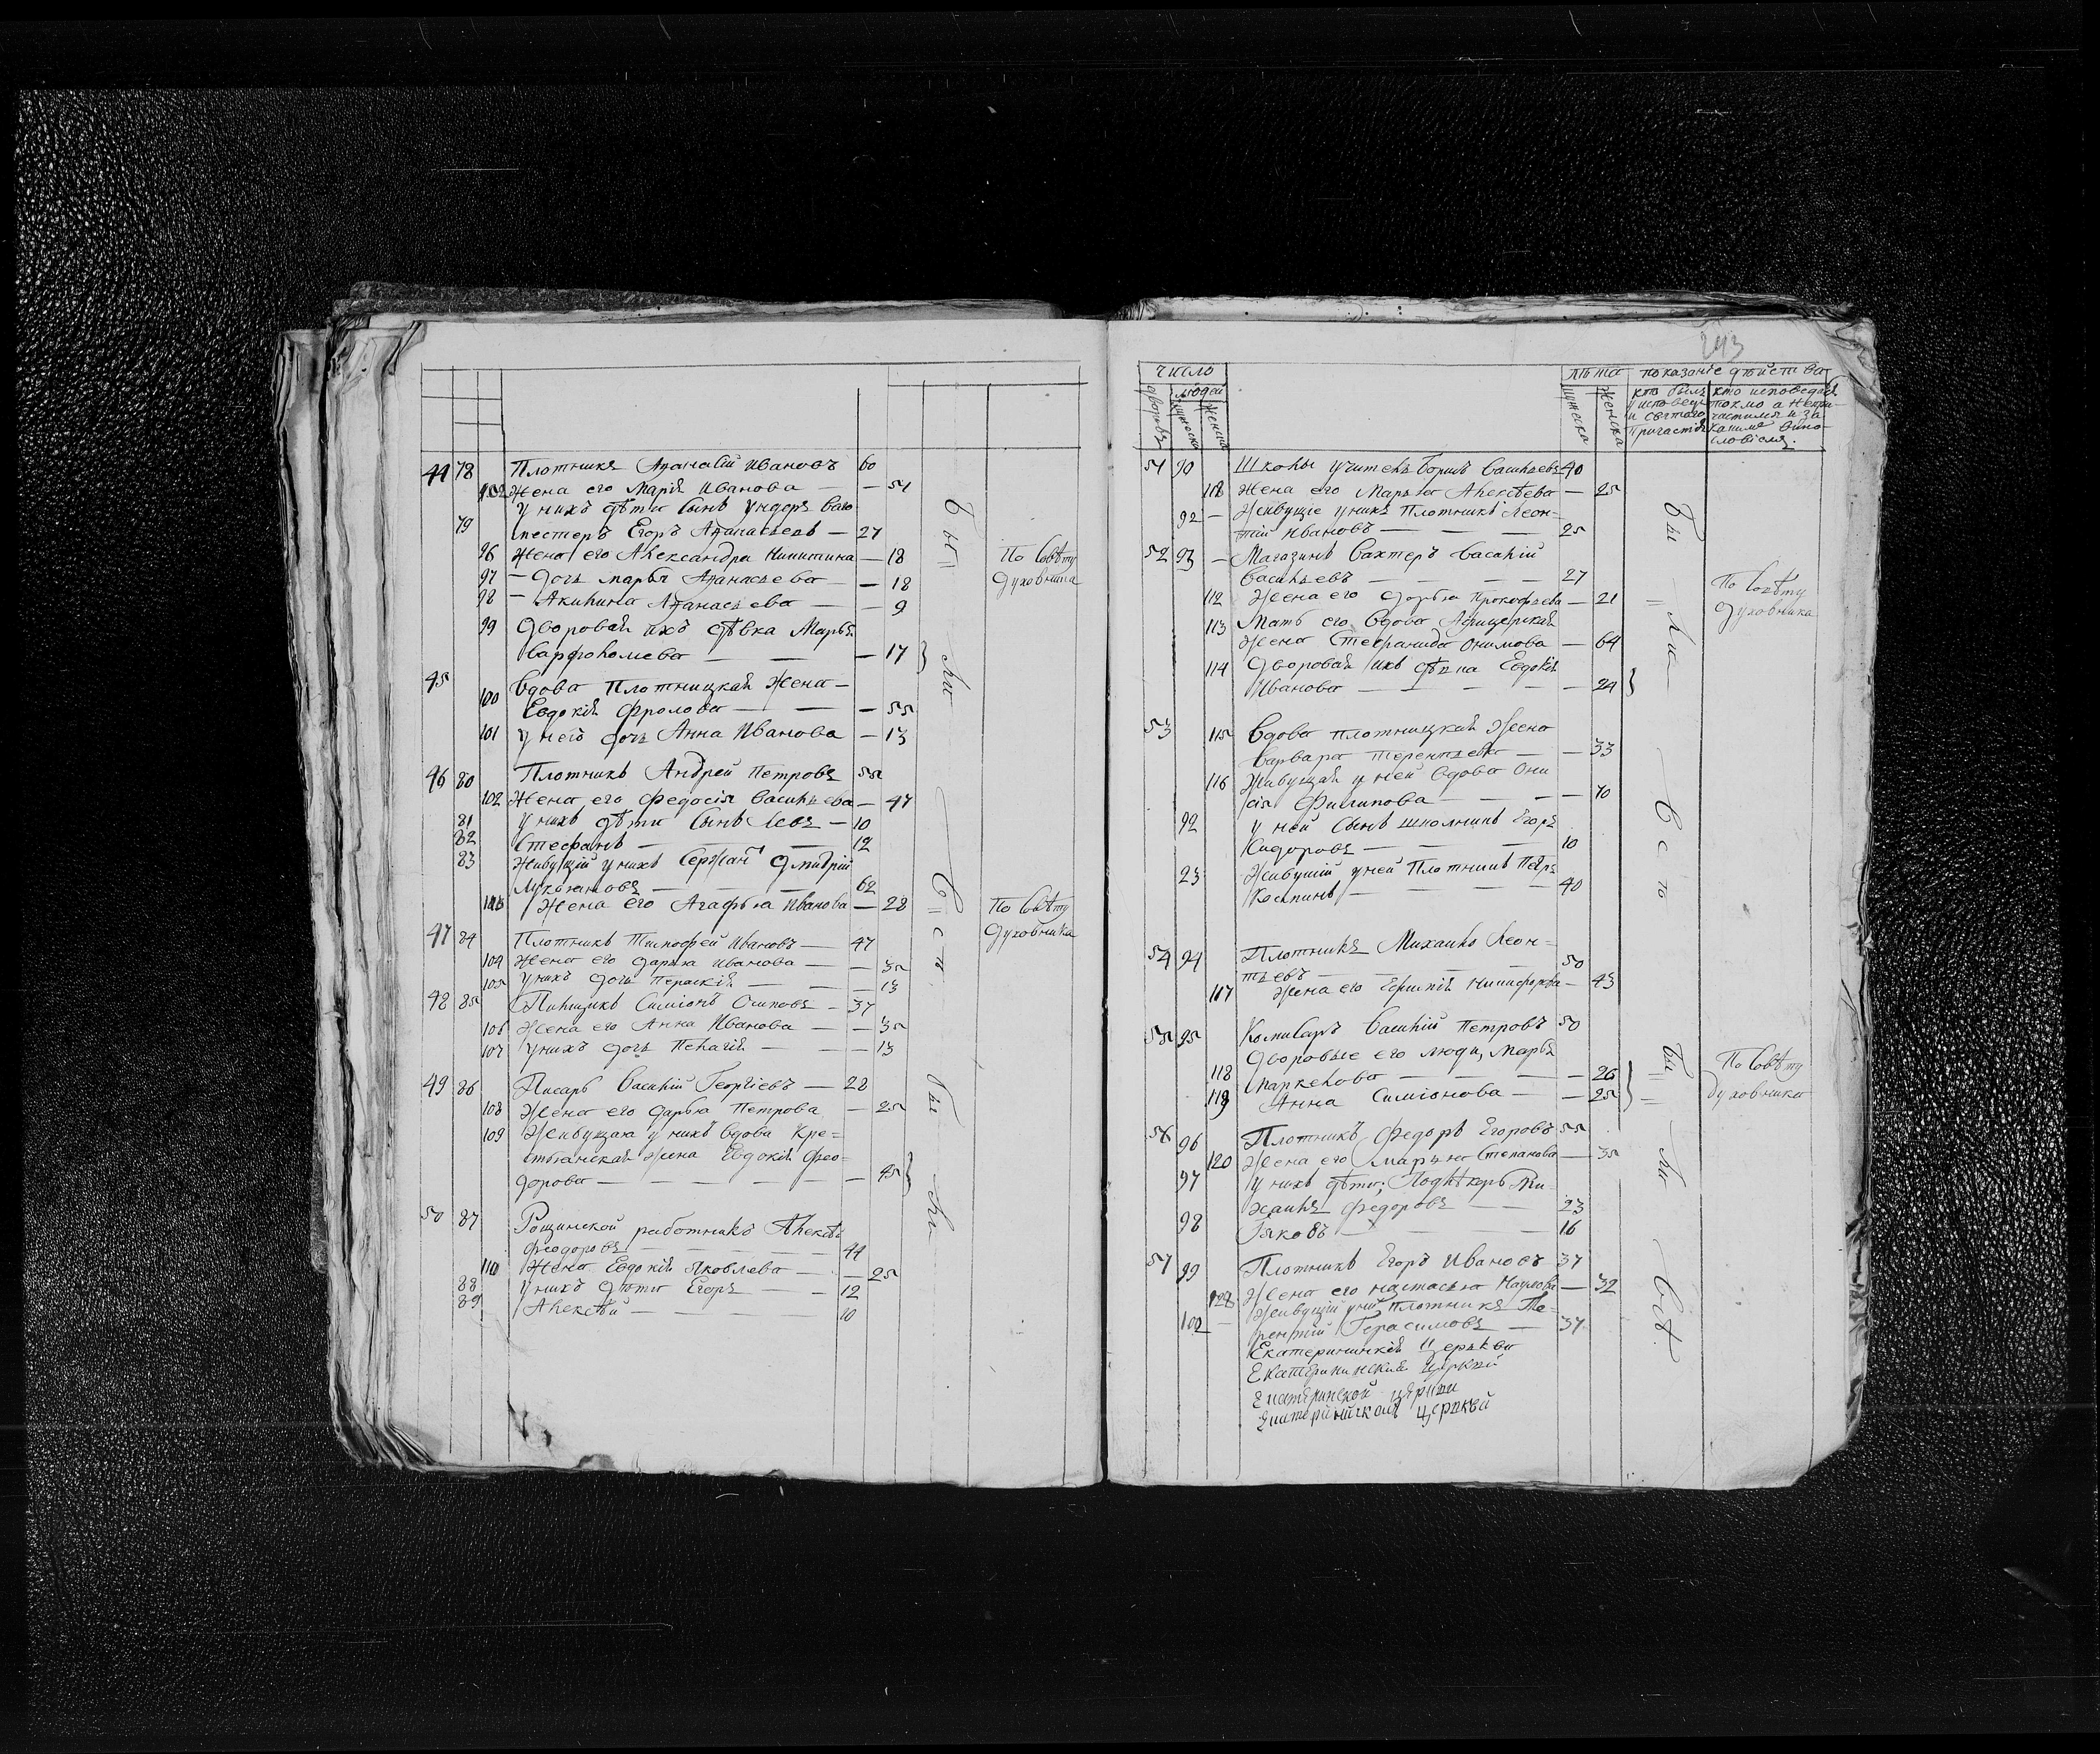 44 78 Плотникъ Афанасій Ивановъ 60
Жена его Марія Иванова — 51
у нихъ дѣти сынъ ундеръ ваго
79 местеръ Егоръ Афанасьевъ — 27
96 Жена его Александра Никитина — 18
97 — дочь Марья Афанасьева — 18
98 — Акилина Афанасьева — 9
99 Дворовая ихъ дѣвка Марья
Варфоломева — 17
По совѣту
духовника
45 100 Вдова Плотницкая жена —
Евдокія Фролова — 55
101 у него дочь Анна Иванова — 13
46 80 Плотникъ Андрей Петровъ 55
102 Жена его Федосія Васильева — 47
81 у нихъ дѣти сынъ Левъ — 10
82 Стефанъ — 12
83 Живущій у нихъ Сержантъ Дмидрій
62
Жена его Агафья Иванова — 28
По совѣту
духовника
47 84 Плотникъ Тимофей Ивановъ — 47
104 Жена его Дарья Иванова — 35
105 у нихъ дочь Параскія — 13
48 85 Симіонъ Осиповъ — 37
106 Жена его Анна Иванова — 35
107 у нихъ дочь Пелагія — 13
49 86 Писарь Василій Георгіевъ — 28
108 Жена его Дарья Петрова — 25
109 Живущая у нихъ вдова кре=
стьянская жена Евдокія Фео=
дорова — 45
50 87 работникъ Алексѣй
Феодоровъ — 44
110 Жена Евдокія Яковлева — 25
88 у нихъ дѣти Егоръ — 12
89 Алексѣй — 10
Бы
ли
Всѣ
бы
ли
243
число
людей
дворовъ
мужеска
женска
лѣта
мужеска
женска
показаніе дѣйства
кто былъ
у исповеди
и святаго
причастія
кто исповедал
токмо а непри-
частился и за
какимъ вино-
словіемъ.
51 90 Школы учитель Борисъ Васильевъ 40
118 Жена его Марья Алексѣева — 25
92 — Живущіе у нихъ Плотникъ Леон=
тій Ивановъ — 25
52 93 — Магазинъ Вахтеръ Василій
Васильевъ — 27
112 Жена его Дарья Прокофьева — 21
113 Мать его вдова Афицерская
жена Стефанида Онимова — 64
114 Дворовая ихъ дѣвка Евдокія
Иванова — 24
По совѣту
духовника
53 115 Вдова плотницкая жена
Варвара Терентьева — 33
116 Живущая у ней вдова Они
сія Филипова — 70
92 у ней сынъ школникъ Егоръ
10
23 Живущій у ней Плотникъ Петръ
40
54 94 Плотникъ Михаилъ Леон=
тьевъ — 50
117 Жена его Никифорова — 43
55 95 Комисаръ Василій Петровъ 50
Дворовые его люди, Марья
118 Маркелова — 26
119 Анна Симіонова — 25
По совѣту
духовника
56 96 Плотникъ Федоръ Егоровъ 55
120 Жена его Марья Степанова — 35
97 у нихъ дѣти; Ми=
хаилъ Федоровъ — 23
98 Іяковъ — 16
57 99 Плотникъ Егоръ Ивановъ 37
Жена его Настасья Наумова — 32
Живущій у ней плотникъ Те=
100 рентій Герасимовъ — 37
Екатеринискія Церькви
Екатерининския церквй
Екатеринской церкви
Екатеринискоя церквей
Бы
ли
Всѣ
Бы
ли
Всѣ